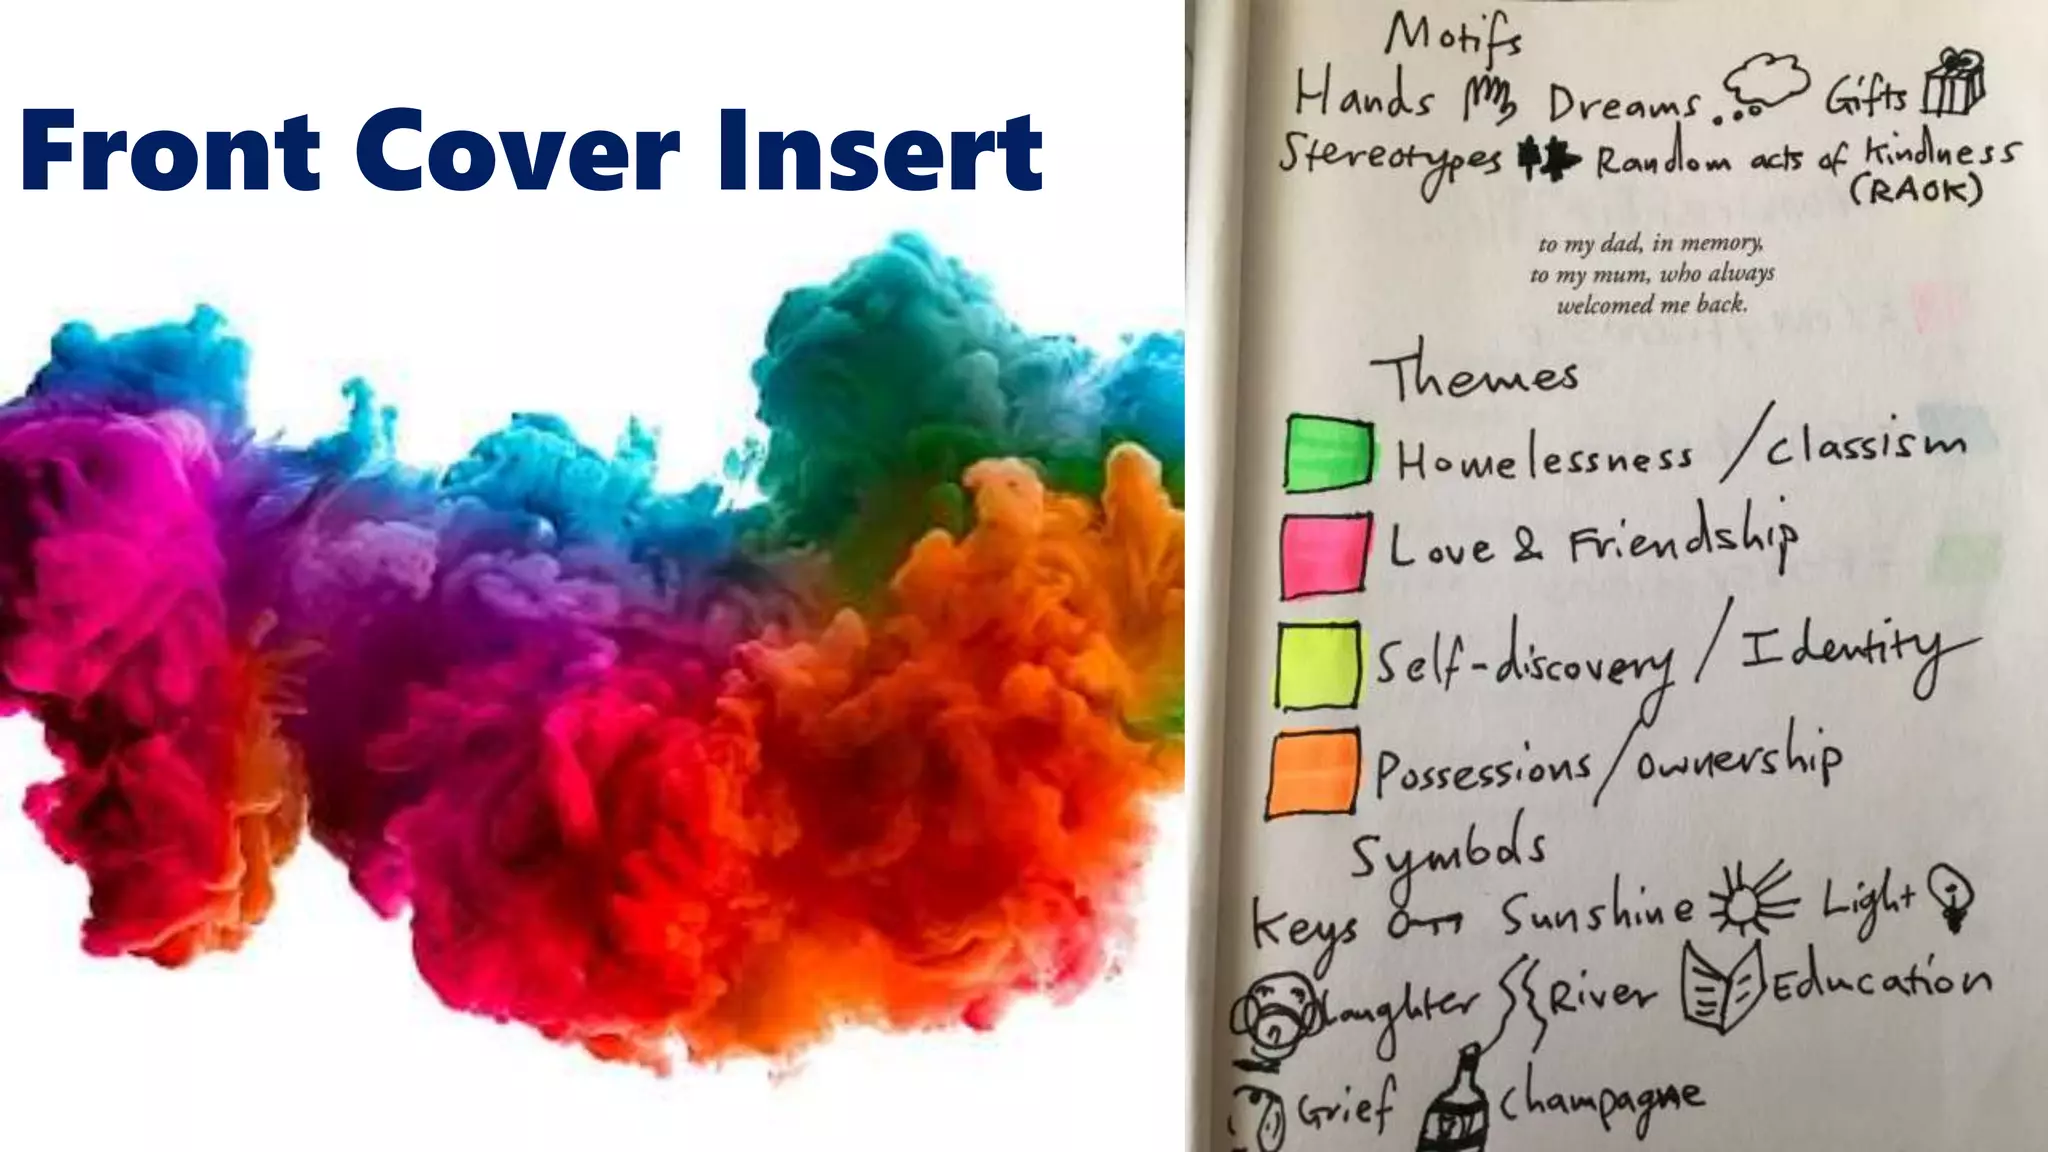 Front Cover Insert
Motifs
Hands Dreams... Gifts
Stereotypes Random acts of Kindness
(RAOK)
to my dad, in memory,
to my mum, who always
welcomed me back.
Themes
Homelessness / classism
Love & Friendship
Self-discovery / Identity
Possessions / ownership
Symbols
Keys Sunshine Light
Laughter River Education
Grief Champagne